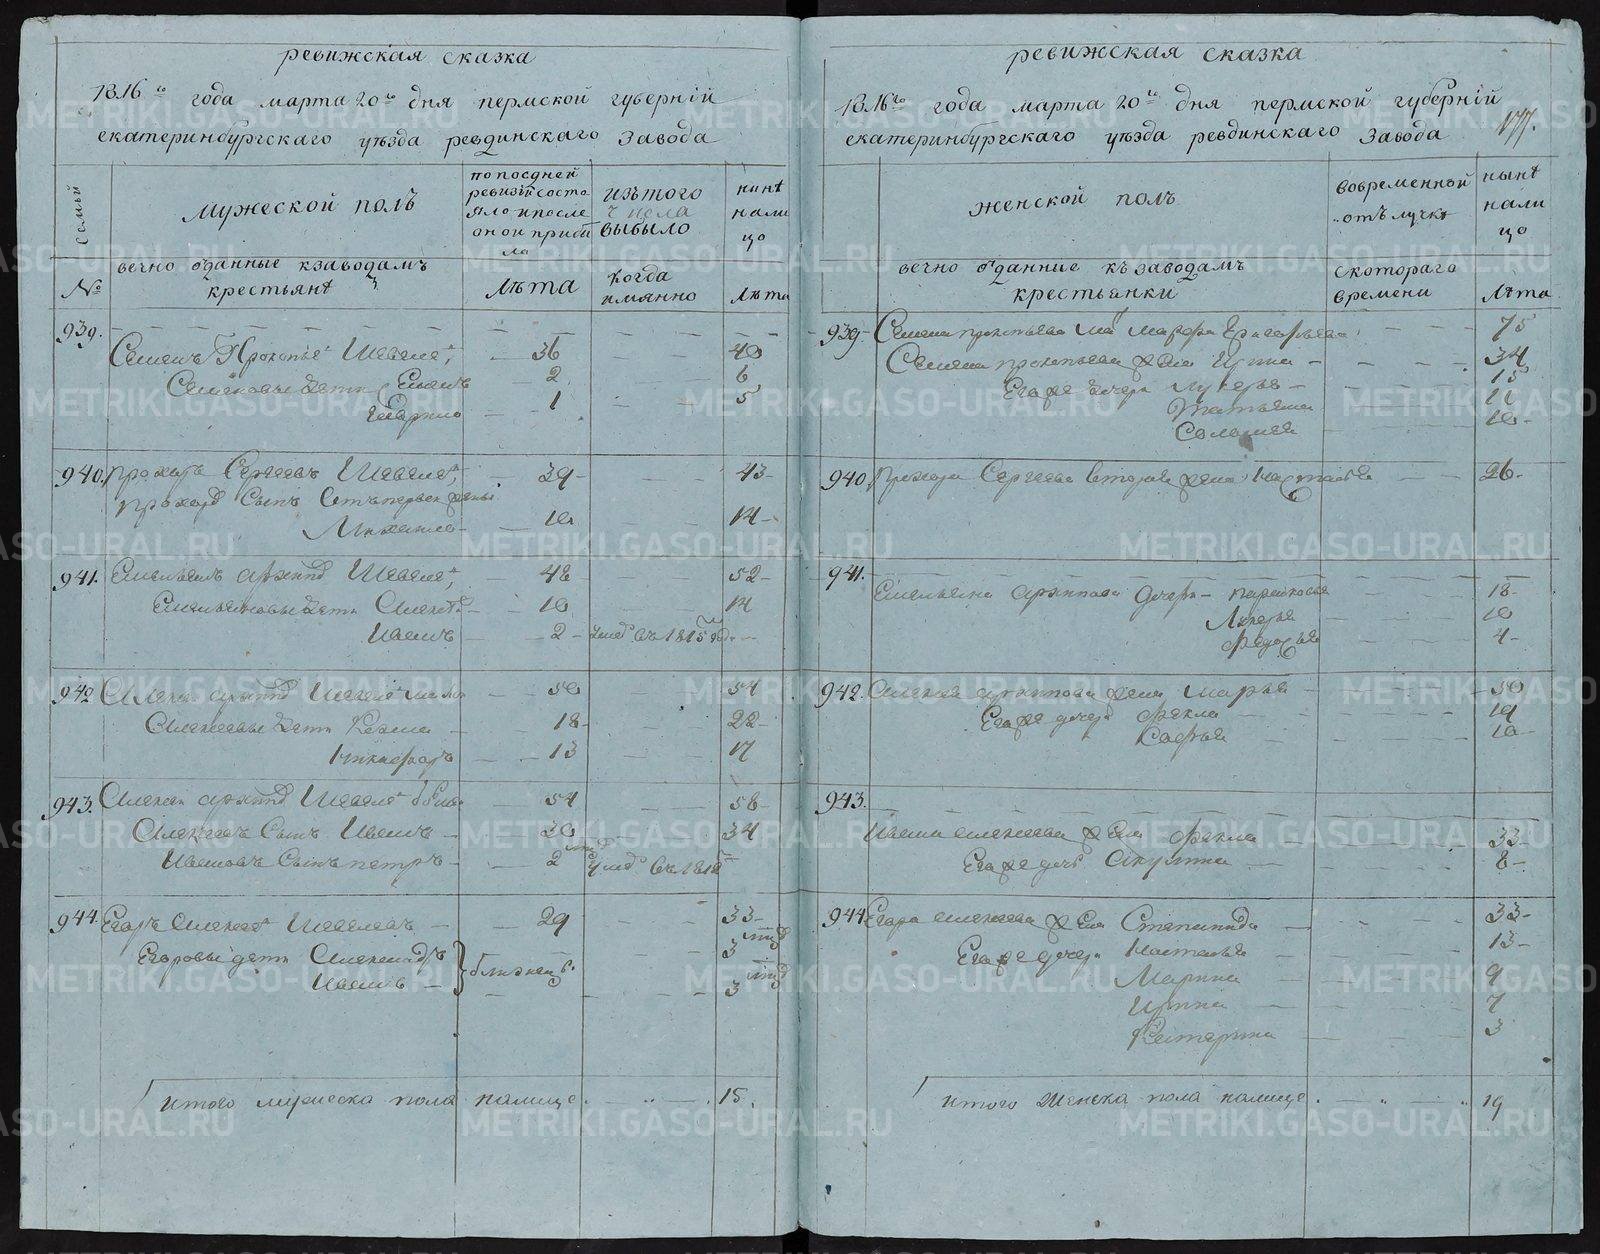 ревижская сказка
1816го года марта 20го дня пермской губернiй
екатеринбургскаго уѣзда ревдинскаго завода
Семьи
мужеской полъ
по последней
ревизiй состо
яло и после
оной прибы
ло
изъ того
числа
выбыло
нынѣ
нали
цо
№
вечно отданные к заводамъ
крестьянѣ
Лѣта
когда
имянно
Лѣта
939.
Семенъ Прокопьев Шевеле
36
40
Семеновы дети
2
6
1
5
940. Прохоръ Сергеевъ Шевеле
39
43
Прохора сынъ от первой жены
Михайло
10
14
941. Емельянъ архипов Шевеле
48
52
Емельяновы дети Алексей
10
14
Иванъ
2
умре въ 1815 год.
942 Алексей архипов Шевеле
50
54
Алексеевы дети Козма
18
22
Никифоръ
13
17
943. Алексей архипов Шевеле
54
58
Алексеевъ сынъ Иванъ
30
34
Ивановъ сынъ петръ
2
умре въ 1812
944. Егоръ Алексеев Шевелевъ
29
33
Егоровы дети Александръ
близнецы
3
Иванъ
3
итого мужеска пола налице
15.
ревижская сказка
1816го года марта 20го дня пермской губернiй
екатеринбургскаго уѣзда ревдинскаго завода
177.
женской полъ
во временной
отълучкѣ
нынѣ
нали
цо
вечно отданние къ заводамъ
крестьянки
скотораго
времени
Лѣта
939. Семена прокопьева мать Марфа Григорьева
75
Семена прокопьева жена Ирина
34
Его же дочери Лукерья
15
Татьяна
Соломея
10
940. Прохора Сергеева вторая жена Настасья
26
941.
Емельяна архипова дочери парасковья
18
Лукерья
10
Федосья
4
942. Алексея архипова жена Марья
50
Его же дочери Фекла
19
Софья
10
943.
Ивана алексеева жена Фекла
33
Его же дочь Акулина
8
944. Егора алексеева жена Степанида
33
Его же дочери Настасья
13
Марина
9
Ирина
7
Катерина
3
итого женска пола налице
19
METRIKI.GASO-URAL.RU